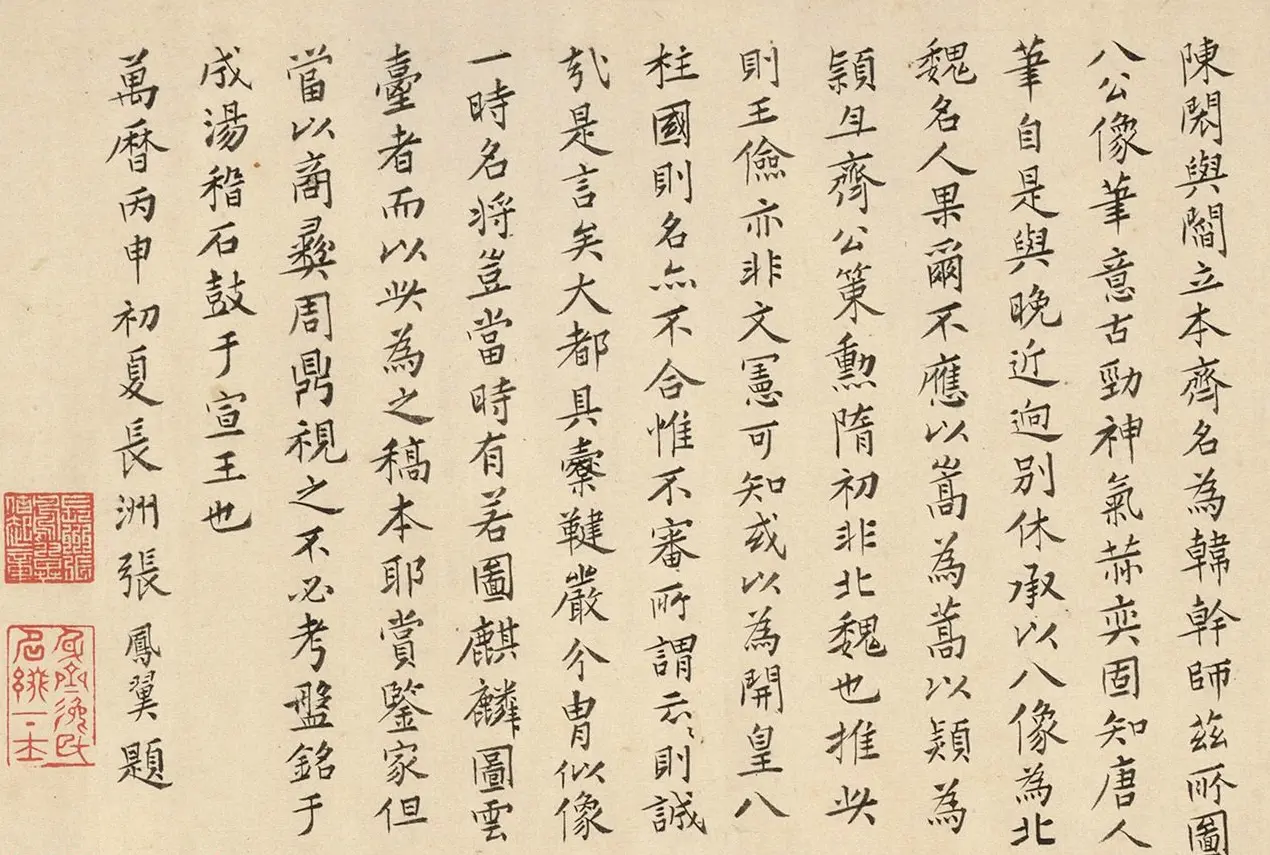 陳閎與閻立本齊名為韓幹師茲所圖
八公像筆意古勁神氣赫奕固知唐人
筆自是與晚近迥別休承以八像為北
魏名人果爾不應以嵩為蒿以熲為
穎且齊公策勳隋初非北魏也推此
則王儉亦非文憲可知或以為開皇八
柱國則名亦不合惟不審所謂云〻則誠
哉是言矣大都具櫜鞬嚴介胄似像
一時名將豈當時有若圖麒麟圖雲
臺者而以此為之稿本耶賞鑒家但
當以商彝周鼎視之不必考盤銘于
成湯稽石鼓于宣王也
萬曆丙申初夏長洲張鳳翼題